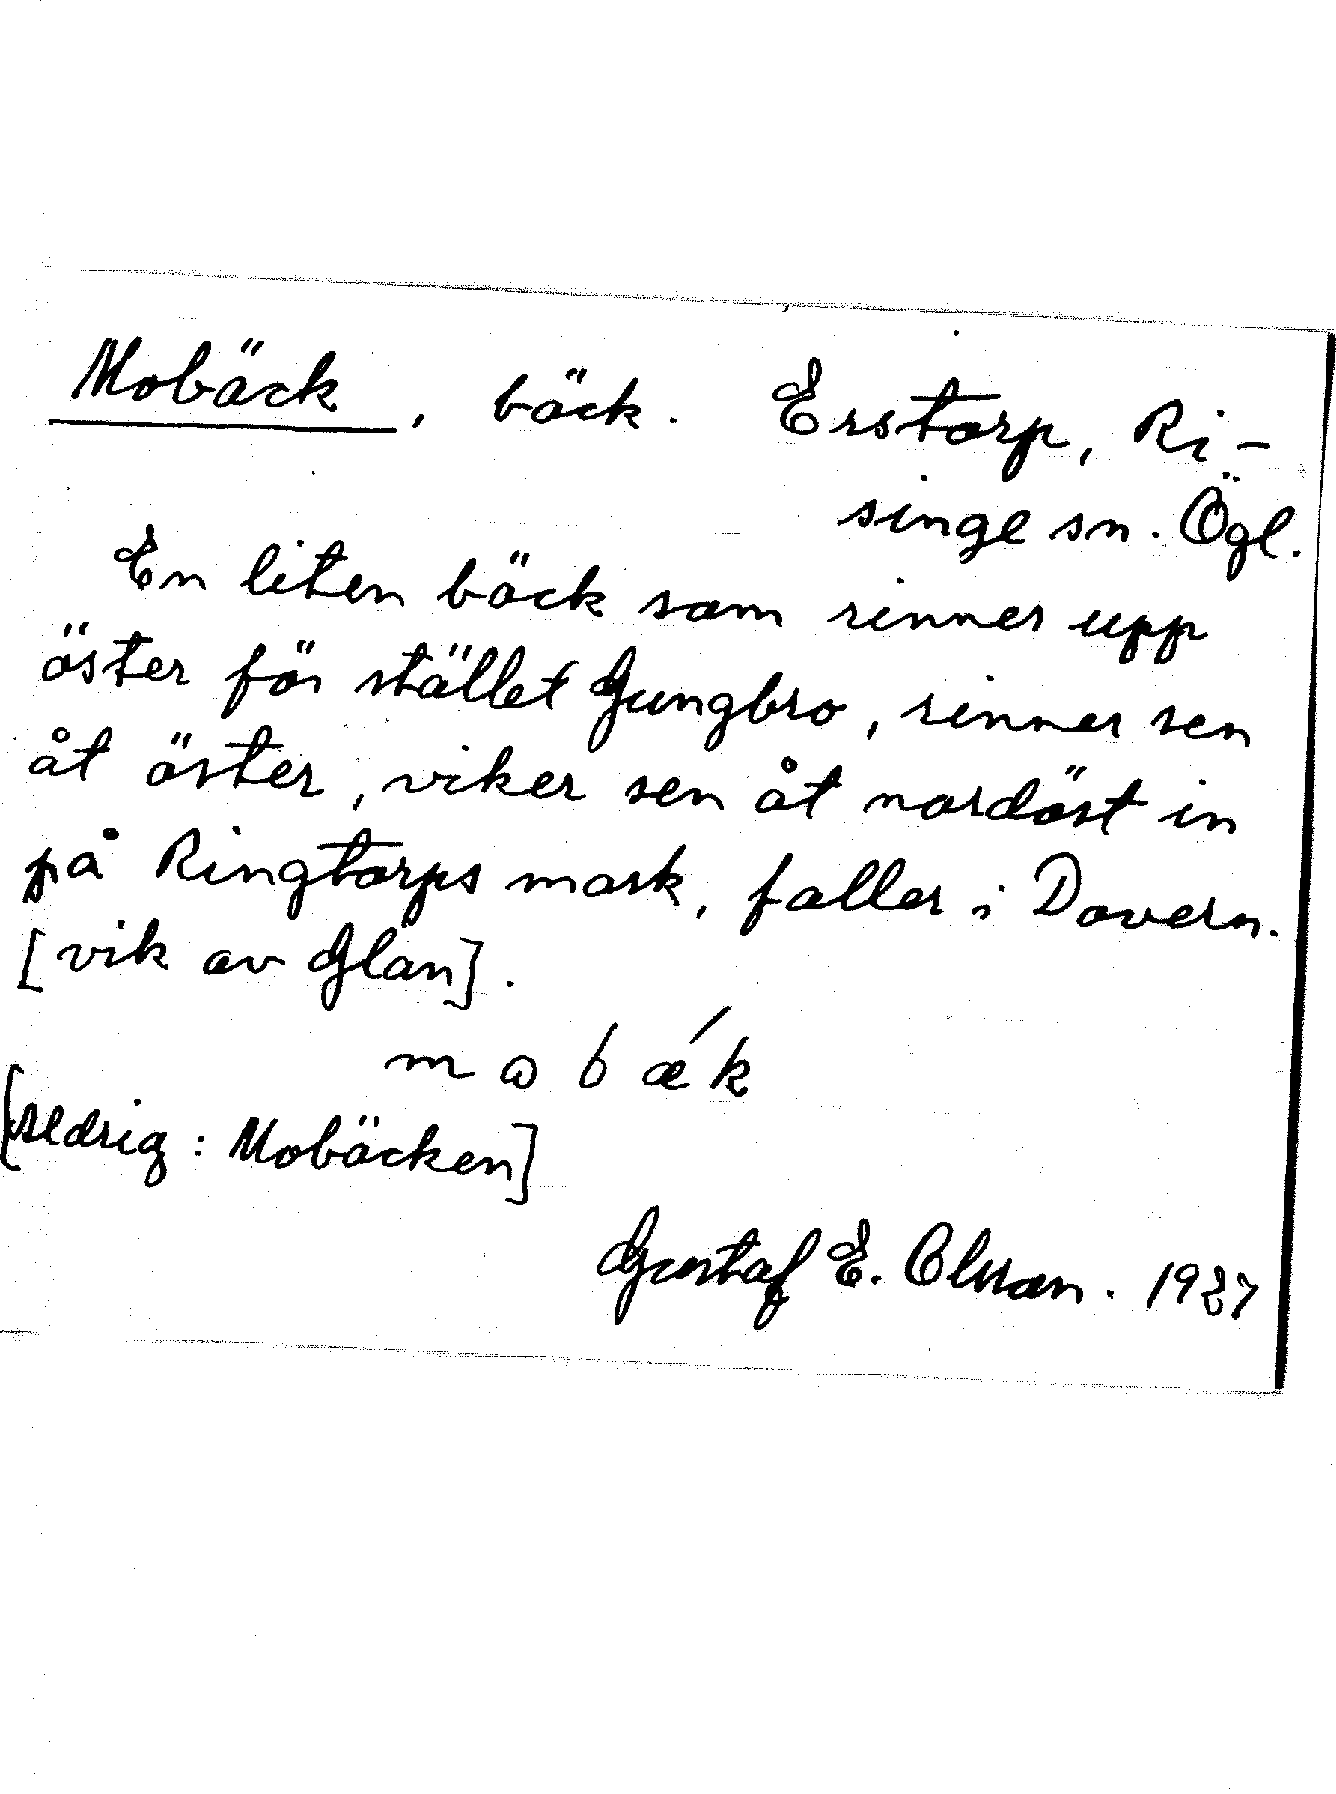 Mobäck, bäck. Erstorp, Ri-
singe sn. Ögl.
En liten bäck som rinner upp
öster för stället Gungbro, rinner sen
åt öster, viker sen åt nordöst in
på Ringtorps mark, faller i Dovern.
[vik av Glan].
m ω b ǽ k
[Aldrig: Mobäcken]
Gustaf E. Olsson. 1927